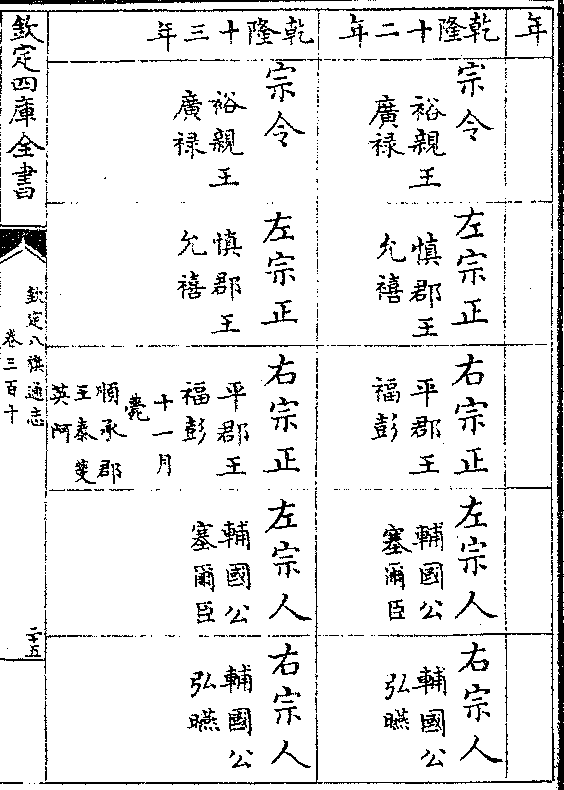 年
乾隆十二年
宗令
裕親王
廣祿
左宗正
慎郡王
允禧
右宗正
平郡王
福彭
左宗人
輔國公
塞爾臣
右宗人
輔國公
弘曣
乾隆十三年
宗令
裕親王
廣祿
左宗正
慎郡王
允禧
右宗正
平郡王
福彭
十一月
薨
順承郡
王泰斐
英阿
左宗人
輔國公
塞爾臣
右宗人
輔國公
弘曣
欽定四庫全書
欽定八旗通志
卷三百十
二十五